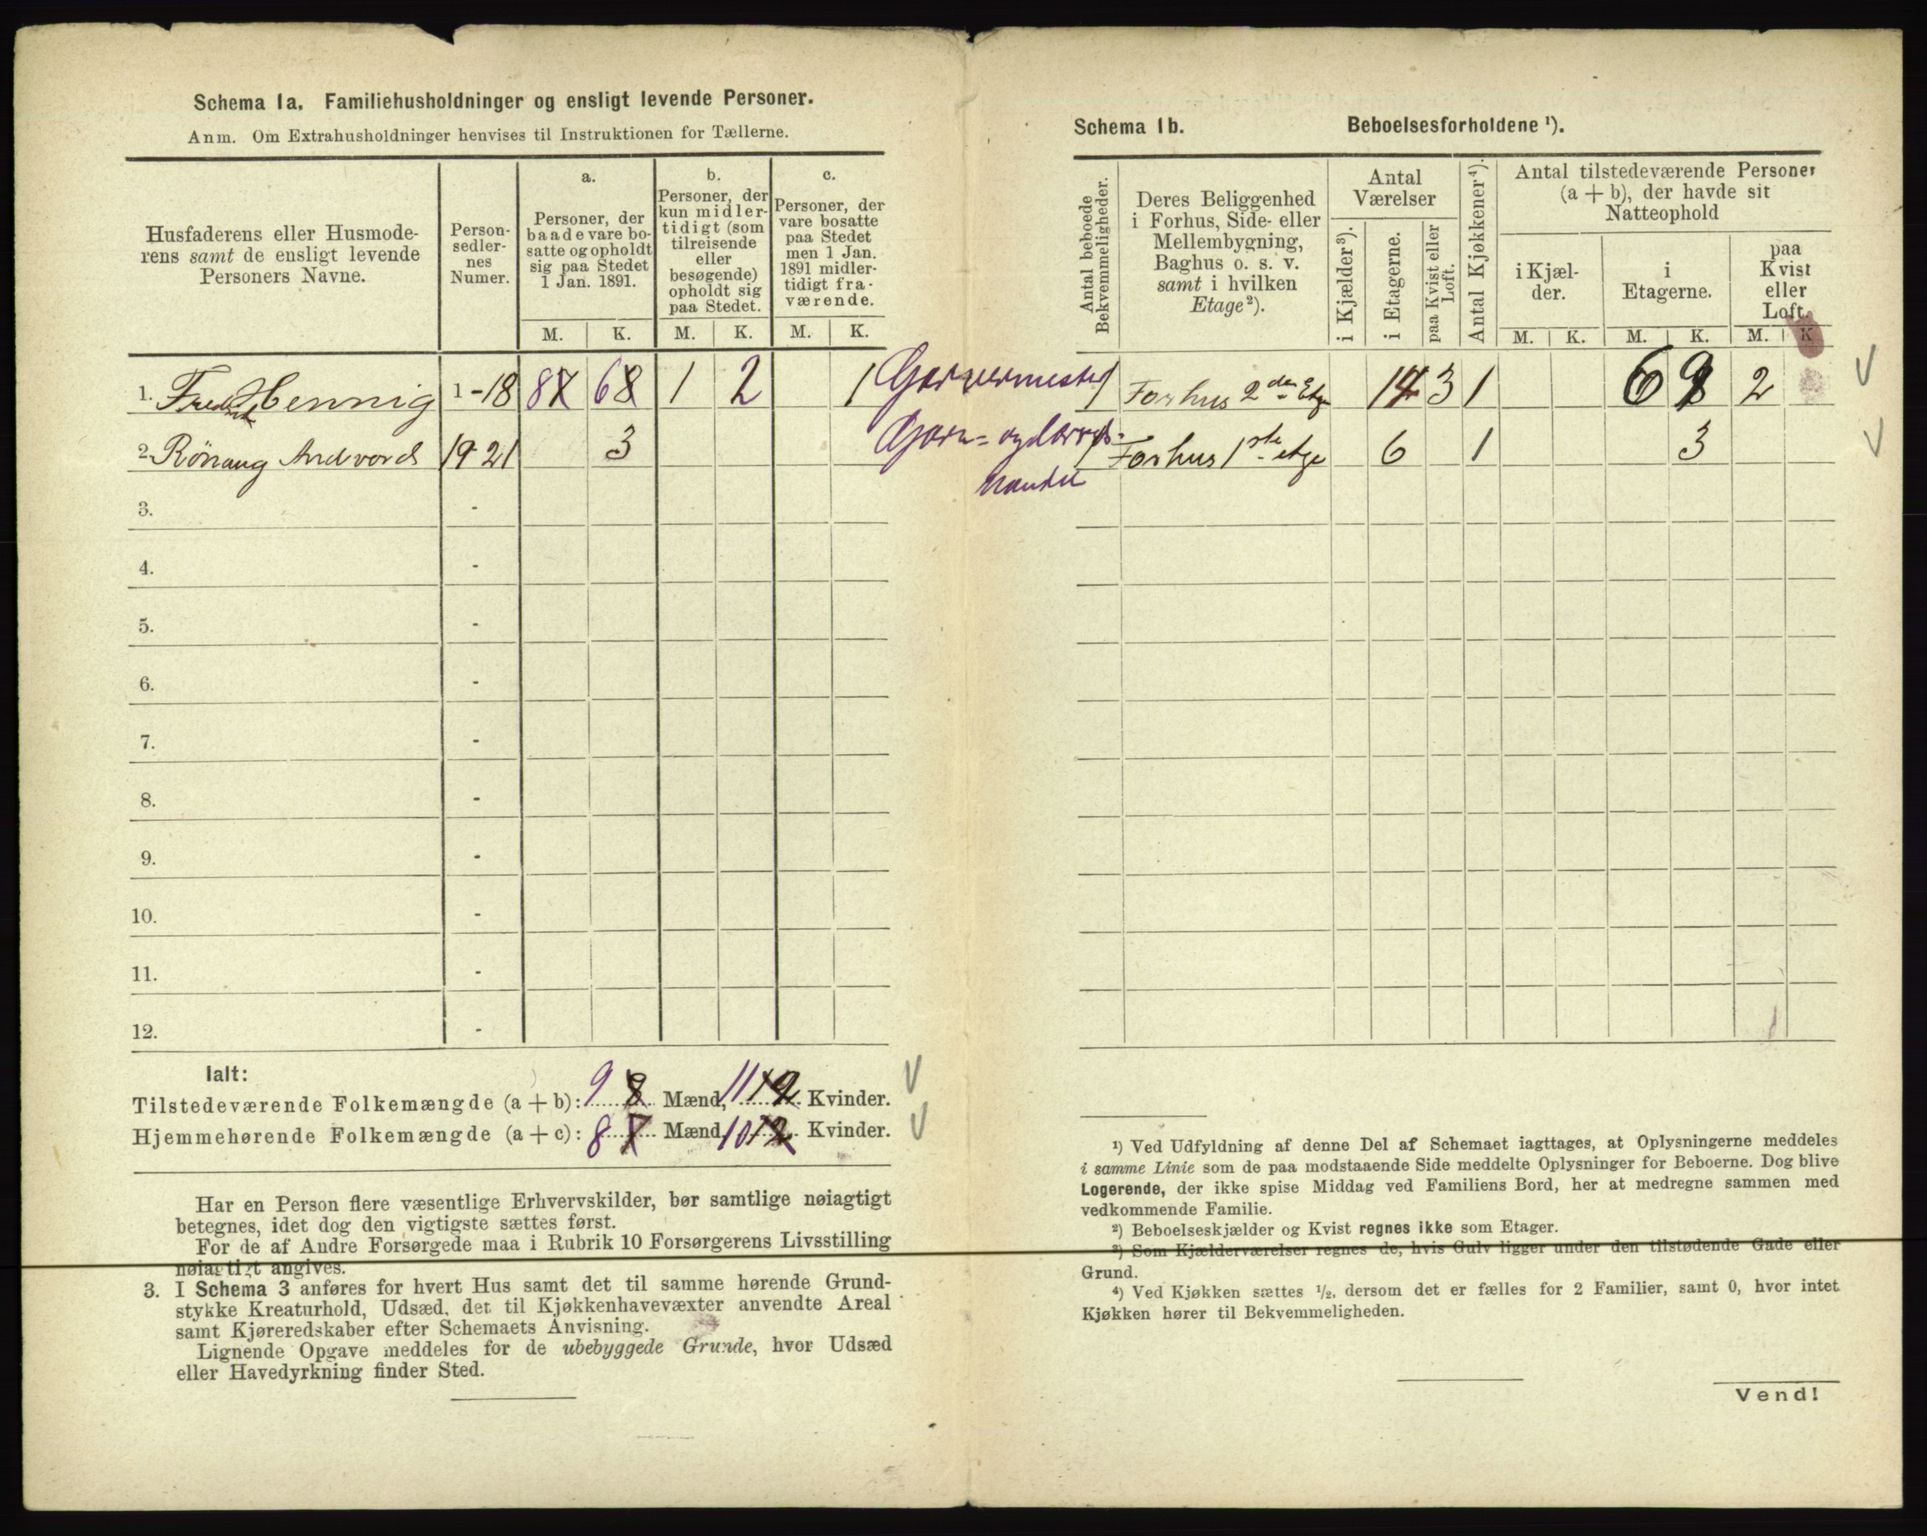 Schema 1a. Familiehusholdninger og ensligt levende Personer.
Anm. Om Extrahusholdninger henvises til Instruktionen for Tællerne.
Husfaderens eller Husmode-
rens samt de ensligt levende
Personers Navne.
Person-
sedler-
nes
Numer.
a.
Personer, der
baade vare bo-
satte og opholdt
sig paa Stedet
1 Jan. 1891.
b.
Personer, der
kun midler-
tidigt (som
tilreisende
eller
besøgende)
opholdt sig
paa Stedet.
c.
Personer, der
vare bosatte
paa Stedet
men 1 Jan.
1891 midler-
tidigt fra-
værende.
M. K. M. K. M. K.
1. Fredrik Hennig 1-18 87 68 1 2 1 Garvermester
2. Rönaug Andvord 19-21 3 Garn- og
handel
3. -
4. -
5. -
6. -
7. -
8. -
9. -
10. -
11. -
12. -
Ialt:
Tilstedeværende Folkemængde (a + b): 9 8 Mænd, 11 12 Kvinder.
Hjemmehørende Folkemængde (a + c): 8 7 Mænd 10 12 Kvinder.
Har en Person flere væsentlige Erhvervskilder, bør samtlige nøiagtigt
betegnes, idet dog den vigtigste sættes først.
For de af Andre Forsørgede maa i Rubrik 10 Forsørgerens Livsstilling
nøiagtigt angives.
3. I Schema 3 anføres for hvert Hus samt det til samme hørende Grund-
stykke Kreaturhold, Udsæd, det til Kjøkkenhavevæxter anvendte Areal
samt Kjøreredskaber efter Schemaets Anvisning.
Lignende Opgave meddeles for de ubebyggede Grunde, hvor Udsæd
eller Havedyrkning finder Sted.
Schema 1b. Beboelsesforholdene ¹).
Antal beboede
Bekvemmeligheder.
Deres Beliggenhed
i Forhus, Side- eller
Mellembygning,
Baghus o. s. v.
samt i hvilken
Etage²).
Antal
Værelser
i Kjælder³).
i Etagerne.
paa Kvist eller
Loft.
Antal Kjøkkener⁴).
Antal tilstedeværende Personer
(a + b), der havde sit
Natteophold
i Kjæl-
der.
i
Etagerne.
paa
Kvist
eller
Loft.
M. K. M. K. M. K
1 Forhus 2den Etge 14 3 1 6 9 2
1 Forhus 1ste etge 6 1 3
¹) Ved Udfyldning af denne Del af Schemaet iagttages, at Oplysningerne meddeles
i samme Linie som de paa modstaaende Side meddelte Oplysninger for Beboerne. Dog blive
Logerende, der ikke spise Middag ved Familiens Bord, her at medregne sammen med
vedkommende Familie.
²) Beboelseskjælder og Kvist regnes ikke som Etager.
³) Som Kjælderværelser regnes de, hvis Gulv ligger under den tilstødende Gade eller
Grund.
⁴) Ved Kjøkken sættes ½, dersom det er fælles for 2 Familier, samt 0, hvor intet
Kjøkken hører til Bekvemmeligheden.
Vend!